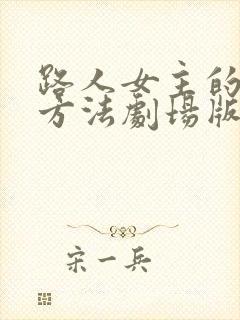 路人女主的
方法劇場版
宋一兵